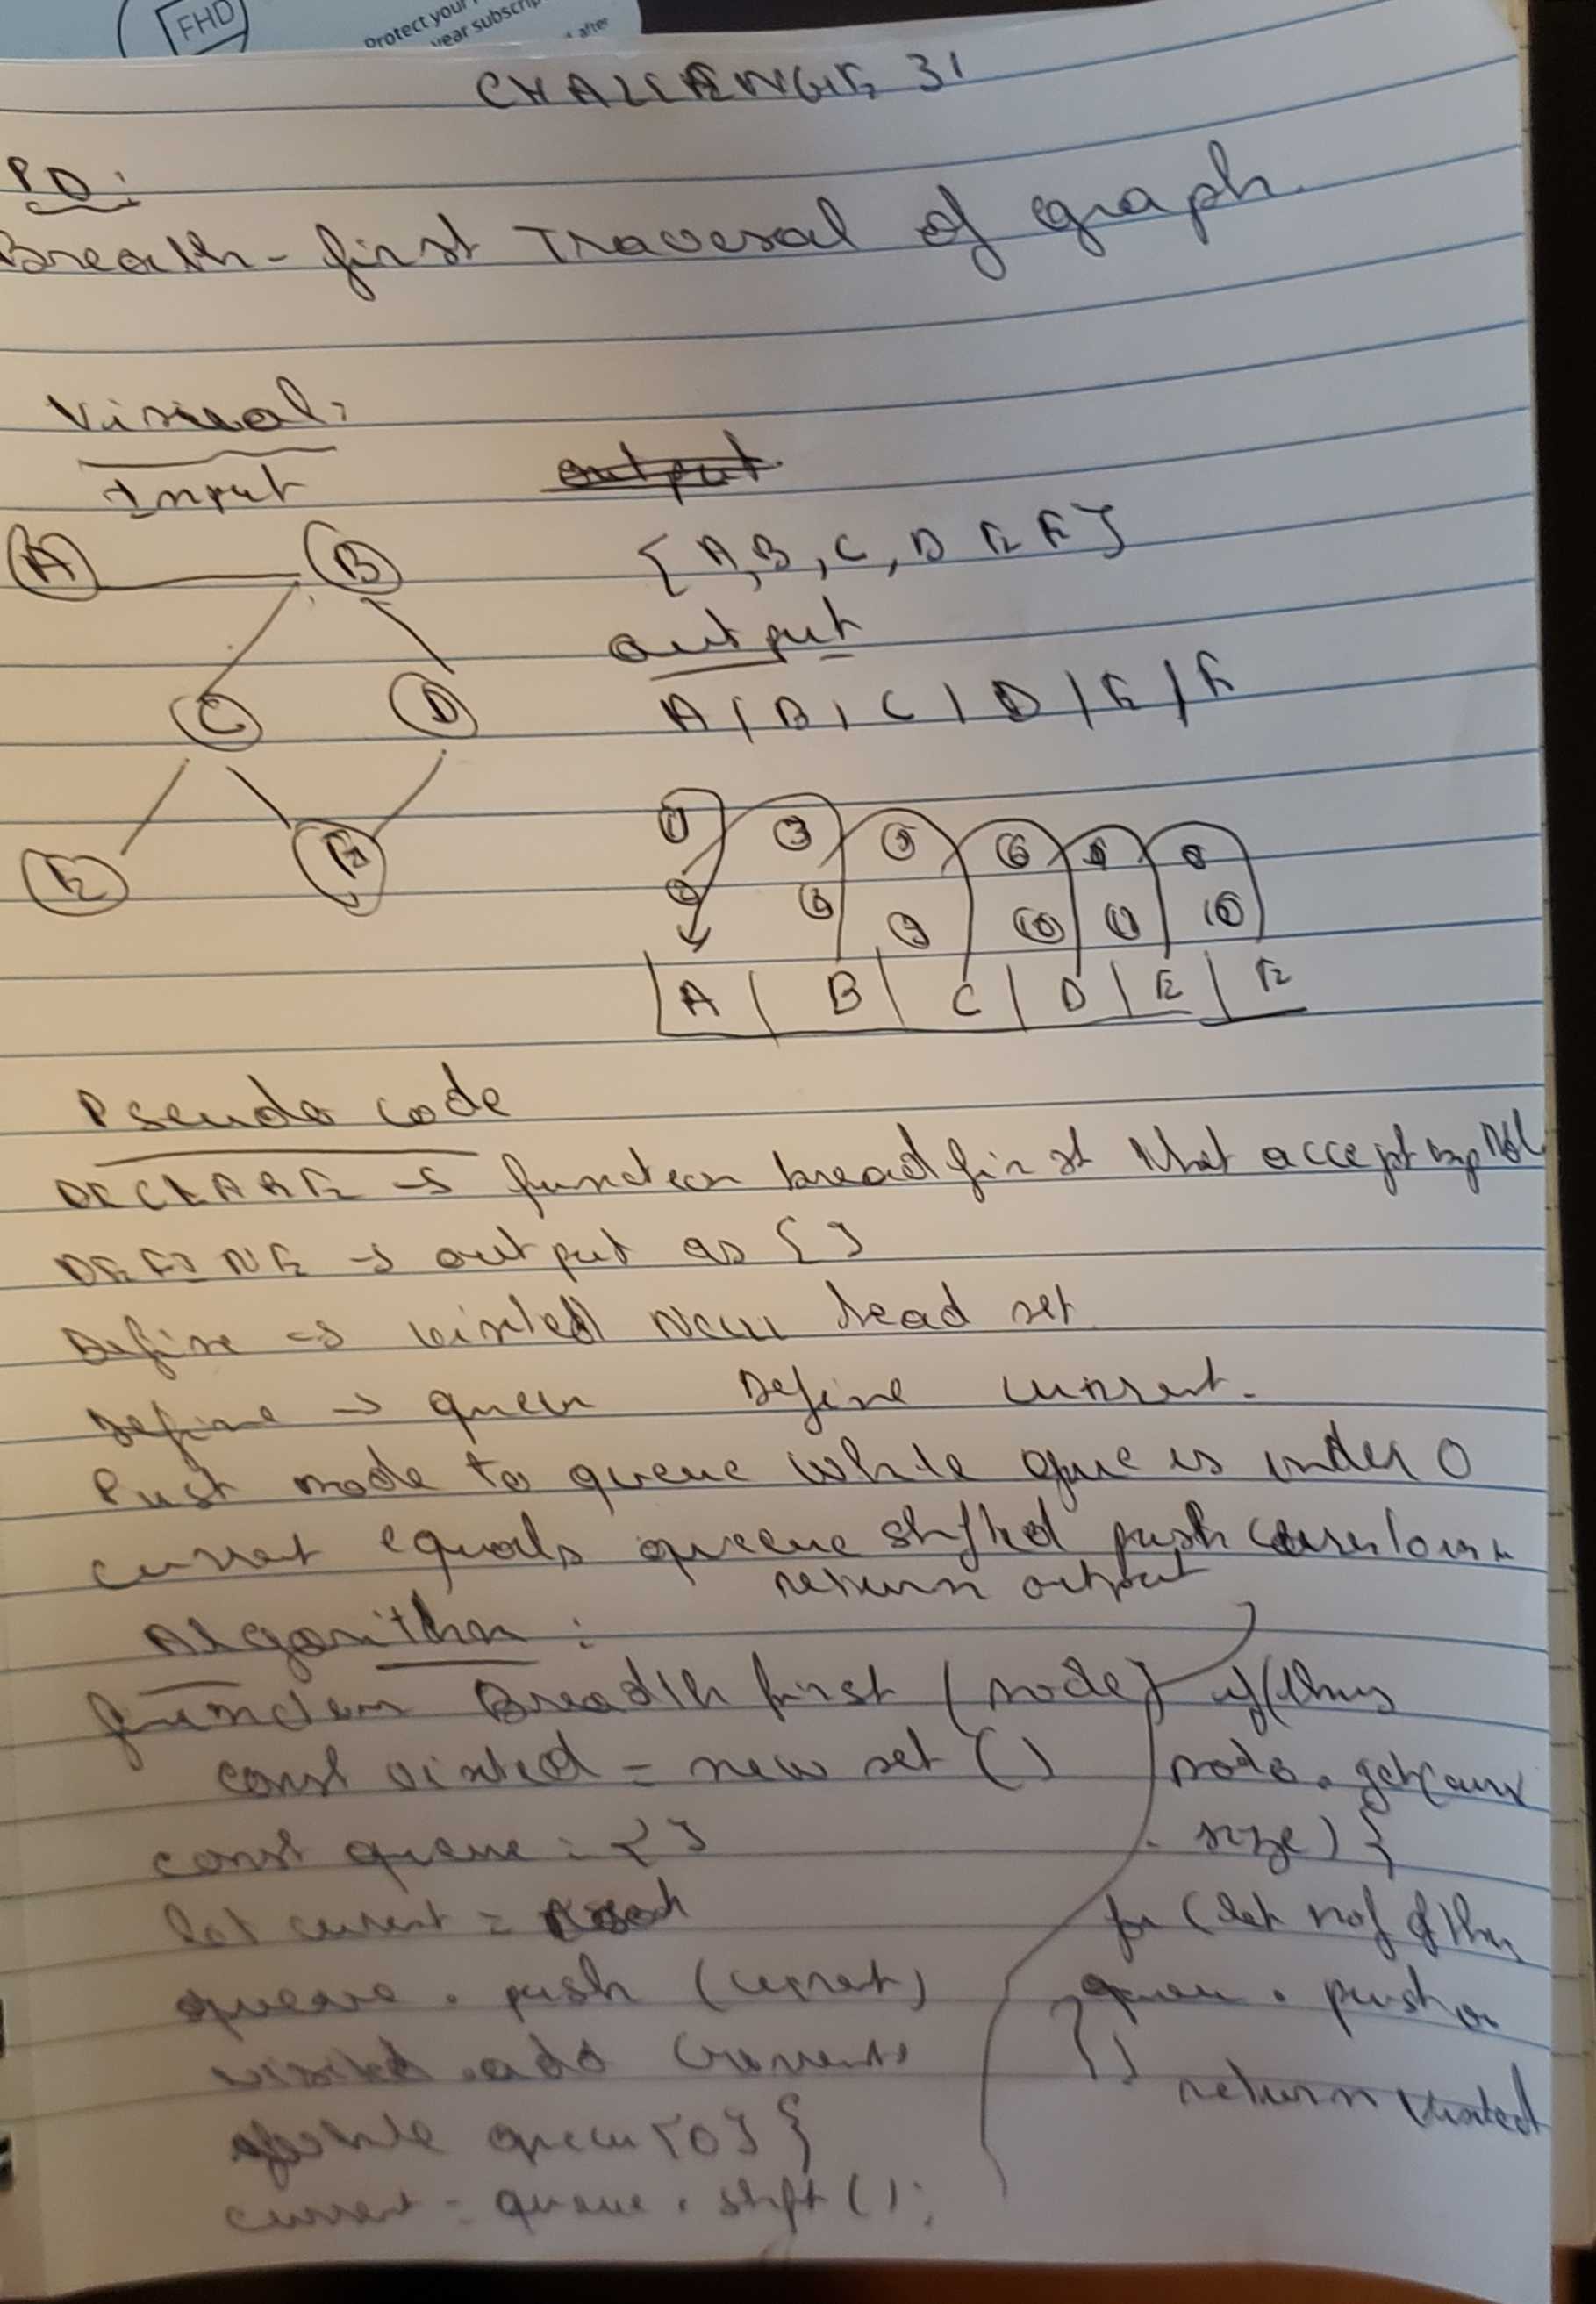 FHD
Protect your
year subscrip
after
CHALLENGE 31
PD:
Breath-first Traversal of graph.
Visual:
Input
output
A B
{A, B, C, D E F}
output
C D
A | B | C | D | E | F
E F
A | B | C | D | E | F
Pseudo code
DECLARE → function breadfirst that accept
DEFINE → output as { }
Define → visited New head set
Define → queue Define current.
Push node to queue while que is under 0
current equals queue shifted push
return output
Algorithm:
function Breadth first (node)
const visited = new set ()
const queue = { }
let current =
queue . push (current)
visited .add (current)
while queue [0] {
current = queue . shift ();
if (this
node . get(curr
. size) {
for (let n of of this
queue . push n
}}
return visited